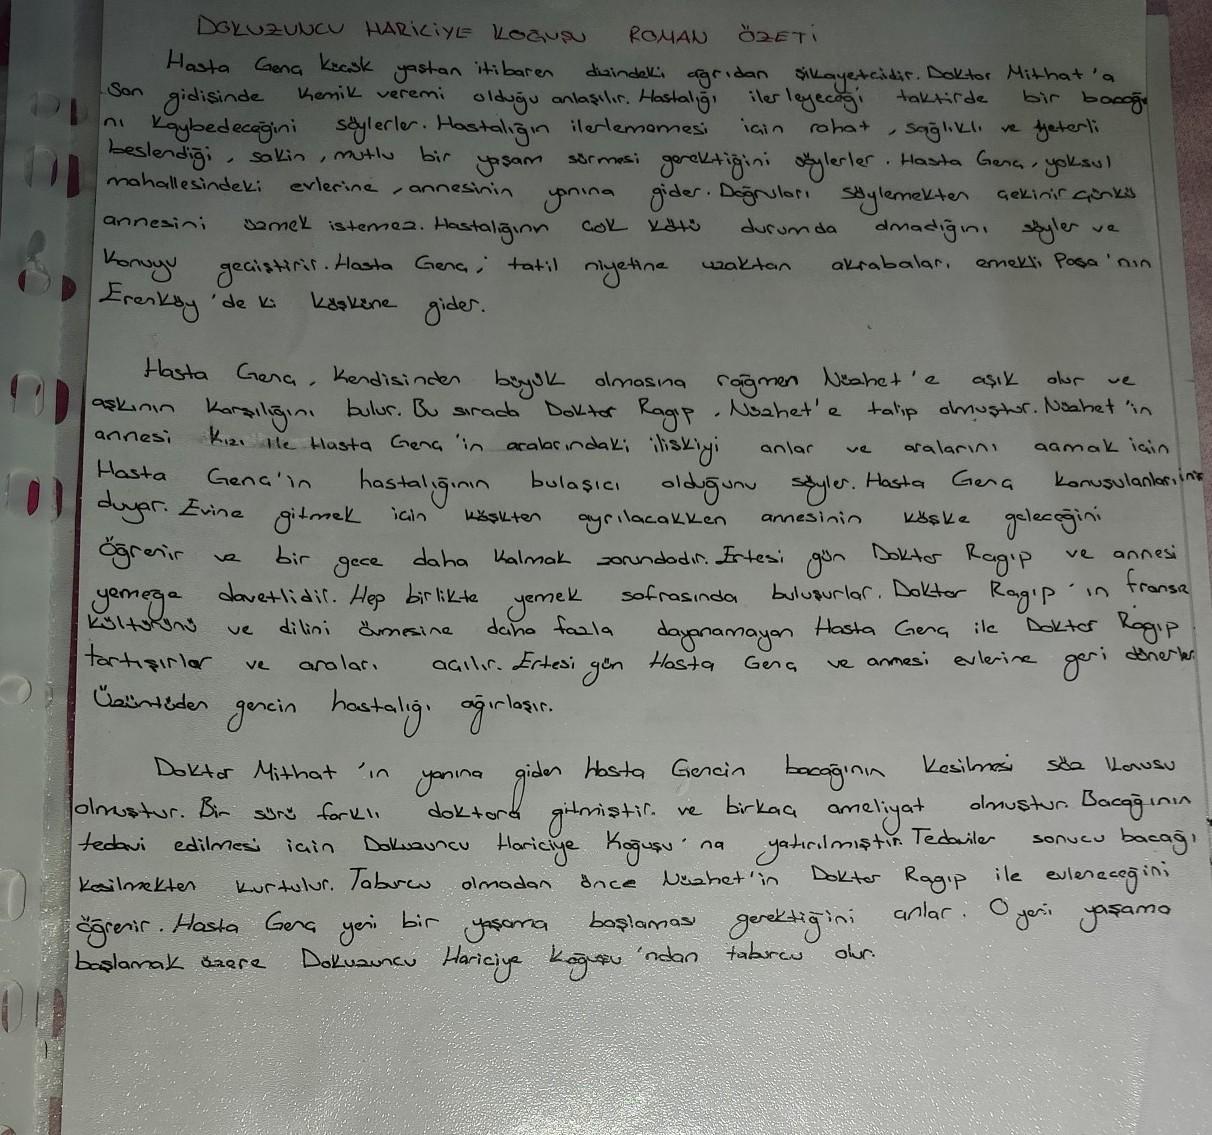 DOKUZUNCU HARİCİYE KOĞUŞU ROMAN ÖZETİ
Hasta Genç küçük yaştan itibaren dizindeki ağrıdan şikayetçidir. Doktor Mithat'a
son gidişinde kemik veremi olduğu anlaşılır. Hastalığı ilerleyeceği taktirde bir bacağı
nı kaybedeceğini söylerler. Hastalığın ilerlememesi için rahat, sağlıklı ve yeterli
beslendiği, sakin, mutlu bir yaşam sürmesi gerektiğini söylerler. Hasta Genç, yoksul
mahallesindeki evlerine, annesinin yanına gider. Doğruları söylemekten çekinir çünkü
annesini üzmek istemez. Hastalığının çok kötü durumda olmadığını söyler ve
konuyu geçiştirir. Hasta Genç; tatil niyetine uzaktan akrabaları emekli Paşa'nın
Erenköy'de ki köşküne gider.
Hasta Genç, kendisinden büyük olmasına rağmen Nüzhet'e aşık olur ve
aşkının karşılığını bulur. Bu sırada Doktor Ragıp, Nüzhet'e talip olmuştur. Nüzhet'in
annesi kızı ile Hasta Genç'in aralarındaki ilişkiyi anlar ve aralarını açmak için
Hasta Genç'in hastalığının bulaşıcı olduğunu söyler. Hasta Genç konuşulanların
duyar. Evine gitmek için köşkten ayrılacakken annesinin köşke geleceğini
Öğrenir ve bir gece daha kalmak zorundadır. Ertesi gün Doktor Ragıp ve annesi
yemeğe davetlidir. Hep birlikte yemek sofrasında buluşurlar. Doktor Ragıp'ın fransız
kültürünü ve dilini övmesine daha fazla dayanamayan Hasta Genç ile Doktor Ragıp
tartışırlar ve araları açılır. Ertesi gün Hasta Genç ve annesi evlerine geri dönerler
Üzüntüden gencin hastalığı ağırlaşır.
Doktor Mithat'ın yanına giden Hasta Gencin bacağının kesilmesi söz konusu
olmuştur. Bir sürü farklı doktora gitmiştir. ve birkaç ameliyat olmuştur. Bacağının
tedavi edilmesi için Dokuzuncu Hariciye Koğuşu'na yatırılmıştır. Tedaviler sonucu bacağı
kesilmekten kurtulur. Taburcu olmadan önce Nüzhet'in Doktor Ragıp ile evleneceğini
öğrenir. Hasta Genç yeni bir yaşama başlaması gerektiğini anlar. O yeni yaşama
başlamak üzere Dokuzuncu Hariciye Koğuşu'ndan taburcu olur.